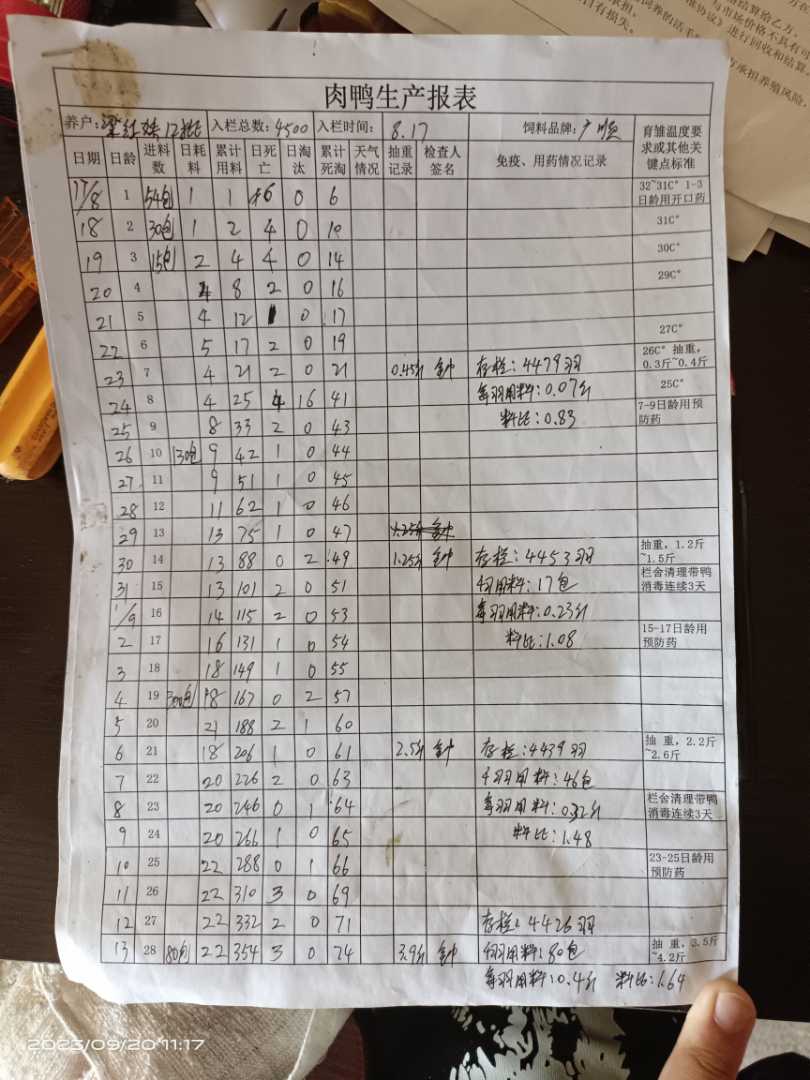 肉鸭生产报表
养户: 12批 入栏总数: 4500 入栏时间: 8.17 饲料品牌: 广顺 育雏温度要求或其他关键点标准
日期 日龄 进料数 日耗料 累计用料 日死亡 日淘汰 累计死淘 天气情况 抽重记录 检查人签名 免疫、用药情况记录
17/8 1 54包 1 1 6 0 6 32~31C° 1-3日龄用开口药
18 2 30包 1 2 4 0 10 31C°
19 3 15包 2 4 4 0 14 30C°
20 4 4 8 2 0 16 29C°
21 5 4 12 1 0 17 27C°
22 6 5 17 2 0 19 26C° 抽重,0.3斤~0.4斤
23 7 4 21 2 0 21 0.45斤 存栏: 4479羽
24 8 4 25 4 16 41 每羽用料: 0.07斤 25C°
25 9 8 33 2 0 43 料比: 0.83 7-9日龄用预防药
26 10 130包 9 42 1 0 44
27 11 9 51 1 0 45
28 12 11 62 1 0 46
29 13 13 75 1 0 47
30 14 13 88 0 2 49 1.25斤 存栏: 4453羽 抽重,1.2斤~1.5斤
31 15 13 101 2 0 51 用料: 17包 栏舍清理带鸭消毒连续3天
1/9 16 14 115 2 0 53 每羽用料: 0.23斤
2 17 16 131 1 0 54 料比: 1.08 15-17日龄用预防药
3 18 18 149 1 0 55
4 19 300包 18 167 0 2 57
5 20 21 188 2 1 60
6 21 18 206 1 0 61 2.5斤 存栏: 4439羽 抽 重,2.2斤~2.6斤
7 22 20 226 2 0 63 千羽用料: 46包
8 23 20 246 0 1 64 每羽用料: 0.32斤 栏舍清理带鸭消毒连续3天
9 24 20 266 1 0 65 料比: 1.48
10 25 22 288 0 1 66 23-25日龄用预防药
11 26 22 310 3 0 69
12 27 22 332 2 0 71 存栏: 4426羽
13 28 80包 22 354 3 0 74 3.9斤 用料: 80包 抽 重,3.5斤~4.2斤
每羽用料: 0.4斤 料比: 1.64
2023/09/20 11:17